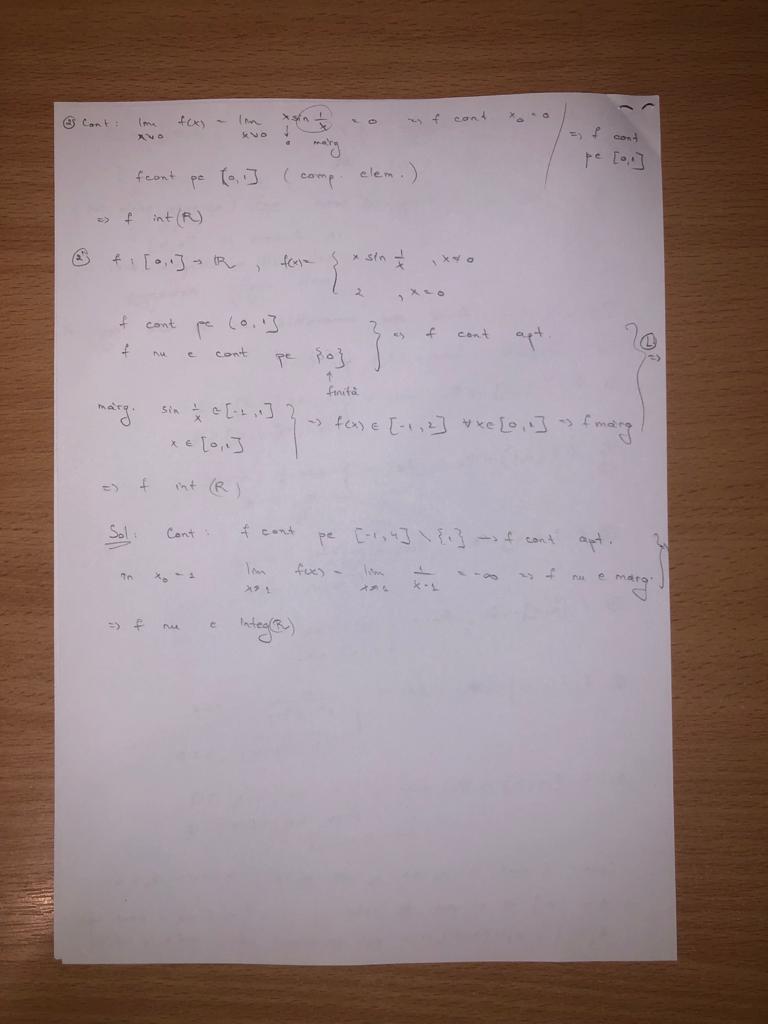 ② Cont: lim x↘0 f(x) = lim x↘0 x sin 1/x = 0 => f cont x₀ = 0 => f cont pe [0,1]
↓ 0 mărg
f cont pe [0,1] (comp. elem.)
=> f int (R)
②'' f: [0,1] → ℝ, f(x) = { x sin 1/x, x≠0
2, x=0
f cont pe (0,1]
f nu e cont pe {0} } => f cont apt.
↑ finită
mărg. sin 1/x ∈ [-1,1]
x ∈ [0,1] } => f(x) ∈ [-1,2] ∀x∈[0,1] => f mărg } Ⓛ =>
=> f int (R)
Sol: Cont: f cont pe [-1,4] \ {1} => f cont apt.
în x₀ = 1 lim x↗1 f(x) = lim x↗1 1/x-1 = -∞ => f nu e mărg. }
=> f nu e integ(R)